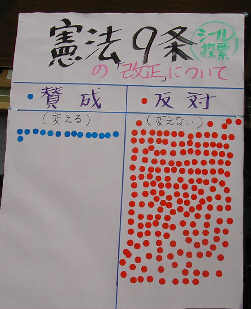 憲法9条
シール投票
の「改正」について
賛成 反対
(変える) (変えない)